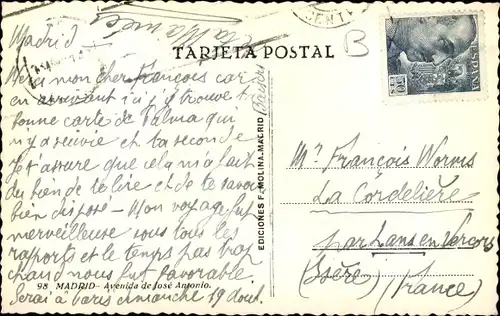 Madrid
TARJETA POSTAL
B
Merci mon cher François car
en arrivant ici j'ai trouvé ta
bonne carte de Palma qui
m'a suivie et ta seconde
Je t'assure que cela m'a fait
du bien de te lire et de te savoir
bien disposé - Mon voyage fut
merveilleux sous tous les
rapports et le temps pas trop
chaud nous fut favorable
Serai à Paris dimanche 19 août.
98 MADRID - Avenida de José Antonio.
EDICIONES F. MOLINA. MADRID
Mr. François Worms
La Cordelière
par Lans en Vercors
(Isère) (France)